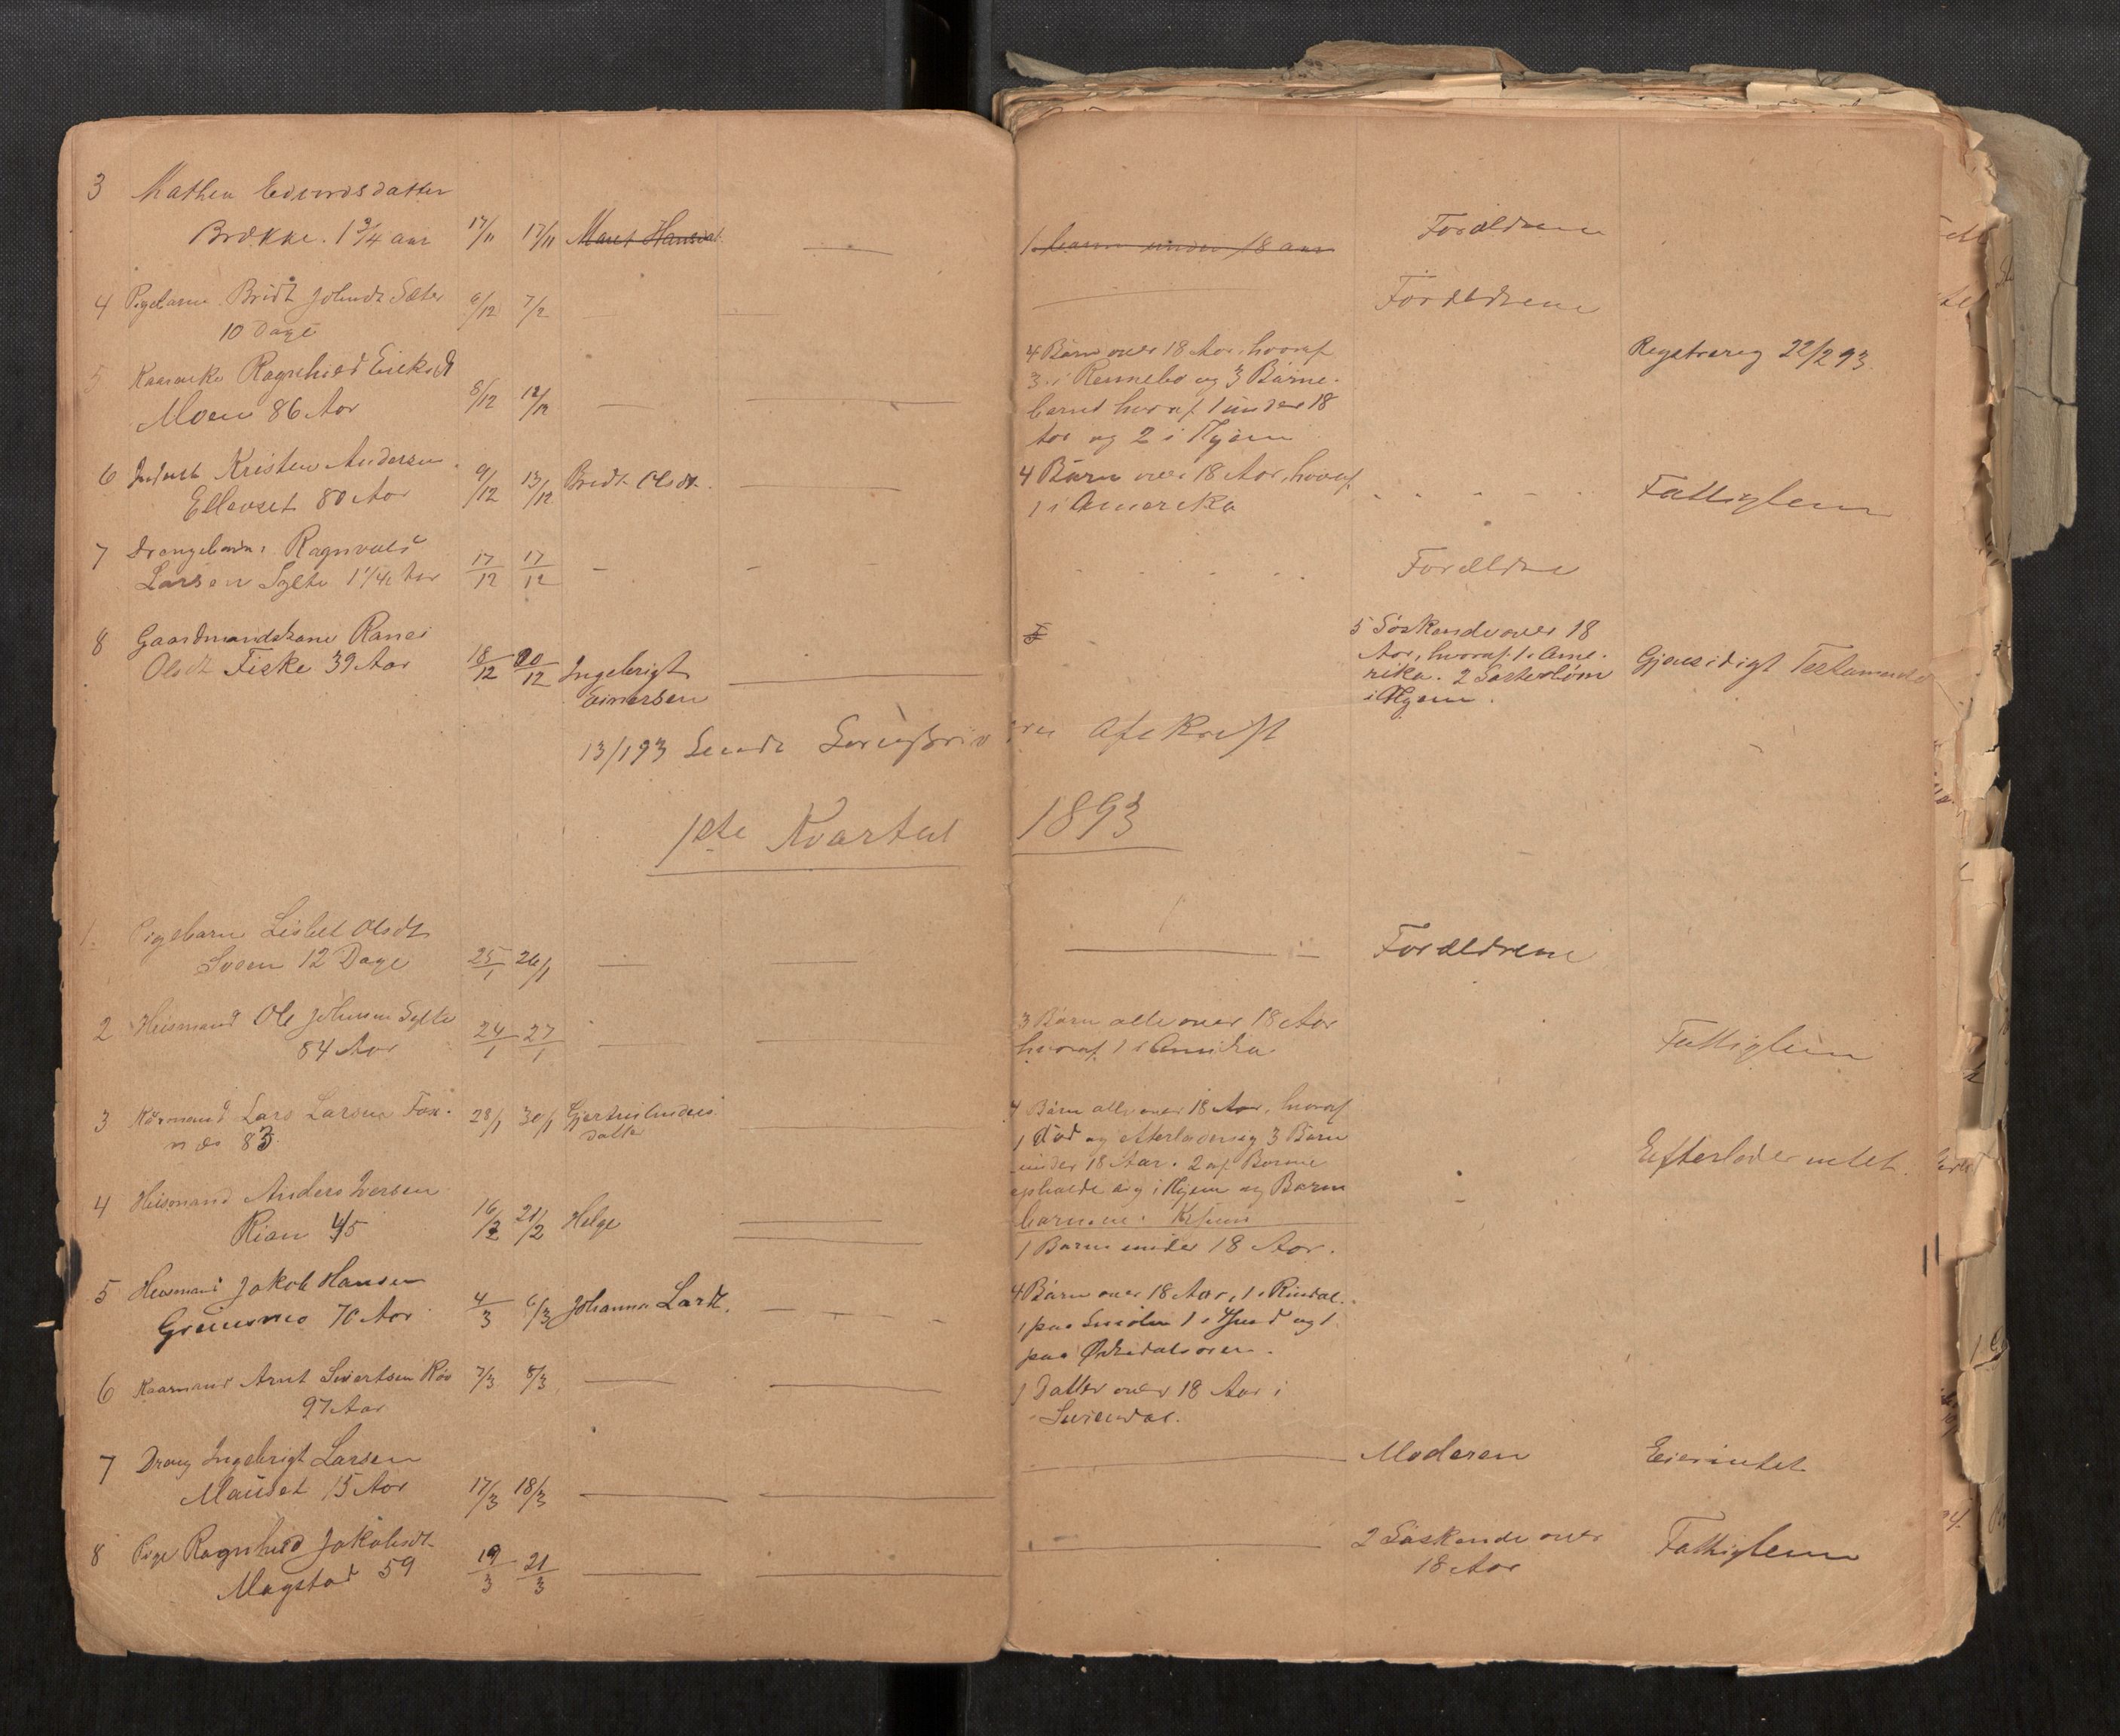 3 Mathea Edvardsdatter
Brække. 1 3/4 aar 17/11 17/11 Maret Hansdat. — 1 barn under 18 aar Forældrene
4 Pigebarn Bridt Johnsdt Sæter 6/12 7/2 — — Forældrene
10 Dage
5 Kaarenke Ragnhild Eriksdt
Moen 86 Aar 8/12 12/12 — —
4 Børn over 18 Aar, hvoraf
3 i Rennebo og 3 Barne-
barns hvoraf 1 under 18
Aar og 2 i Hjem
Registrering 22/2 93.
6 Indерst Kristen Andersen
Ellevset 80 Aar 9/12 13/12 Bridt Olsdt. —
4 Børn over 18 Aar, hvoraf
1 i Amerika
Fattiglem
7 Drengebarn Ragnvald
Larsen Sylte 1 1/4 Aar 17/12 17/12 — — Forældre
8 Gaardmandskone Ranei
Olsdt Fiske 39 Aar 18/12 20/12 Ingebrigt
Einersen
5 Søskende over 18
Aar, hvoraf 1 i Ame-
rika. 2 Søsterbørn
i Hjem.
Gjensidigt Testamente
13/1 93 Sendt Sorenskriveren Afskrift
1ste Kvartal 1893
1. Pigebarn Lisbet Olsdt
Svoen 12 Dage 25/1 26/1 — — — Forældrene
2 Huismand Ole Johnsen Sylte
84 Aar 24/1 27/1 — —
3 Børn alle over 18 Aar
hvoraf 1 i Amerika
Fattiglem
3 Kårmand Lars Larsen Fox-
næs 83 28/1 30/1 Gjertrud Anders
datter
4 Børn alle over 18 Aar, hvoraf
1 død og efterlader sig 3 Børn
under 18 Aar. 2 af Børnene
opholde sig i Hjem og Barne
barnene
Efterlader intet.
4 Huismand Anders Iversen
Rian 45 16/2 21/2 Helge
1 Barn under 18 Aar.
5 Huismand Jakob Hansen
Grimsmo 70 Aar 4/3 6/3 Johanna Larsdt.
4 Børn over 18 Aar, 1 i Rindal.
1 paa Smølen 1 i og 1
paa Ørkedalsøren.
6 Kaarmand Arnt Sivertsen Røv
97 Aar 7/3 8/3 — —
1 Datter over 18 Aar i
Surendal.
7 Dreng Ingebrigt Larsen
Mauset 15 Aar 17/3 18/3 — — — Moderen Eier intet
8 Pige Ragnhild Jakobsdt.
Magstad 59 19/3 21/3 — — —
2 Søskende over
18 Aar
Fattiglem